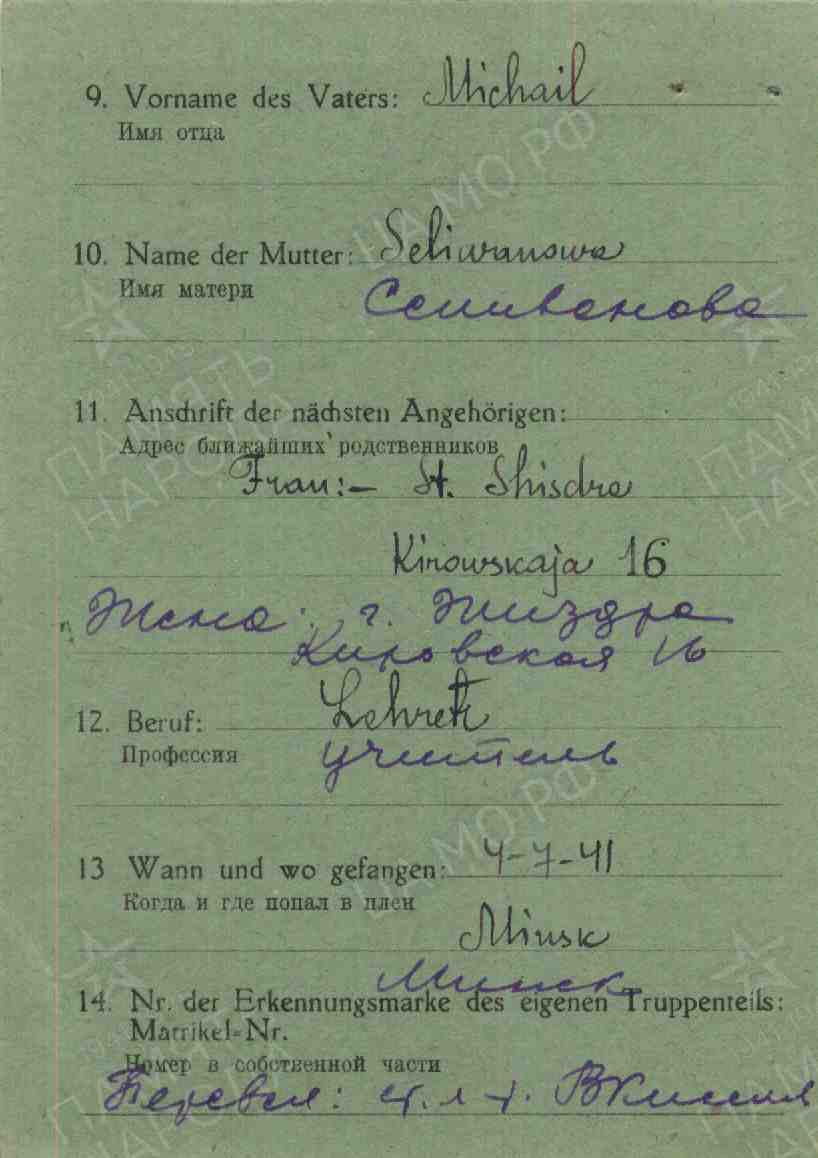 9. Vorname des Vaters: Michail
Имя отца
10. Name der Mutter: Seliwanowa
Имя матери
Селиванова
11. Anschrift der nächsten Angehörigen:
Адрес ближайших родственников
Frau:— St. Shisdra
Kirowskaja 16
Жена: г. Жиздра
Кировская 16
12. Beruf: Lehrer
Профессия учитель
13 Wann und wo gefangen: 4-7-41
Когда и где попал в плен
Minsk
Минск
14. Nr. der Erkennungsmarke des eigenen Truppenteils:
Matrikel-Nr.
Номер в собственной части
Перевел:
ЦАМО РФ
ПАМЯТЬ
НАРОДА
ЦАМО РФ